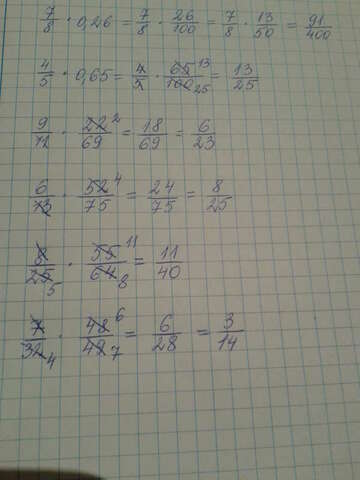 7/8 · 0,26 = 7/8 · 26/100 = 7/8 · 13/50 = 91/400
4/5 · 0,65 = 4/5 · 65 13/100 25 = 13/25
9/11 · 22 2/69 = 18/69 = 6/23
6/13 · 52 4/75 = 24/75 = 8/25
8/25 5 · 55 11/64 8 = 11/40
7/32 4 · 48 6/49 7 = 6/28 = 3/14